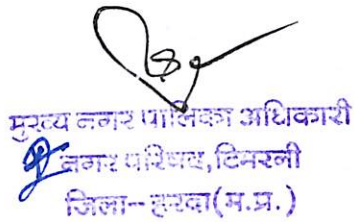 मुख्य नगर पालिका अधिकारी
नगर परिषद, टिमरनी
जिला-हरदा(म.प्र.)